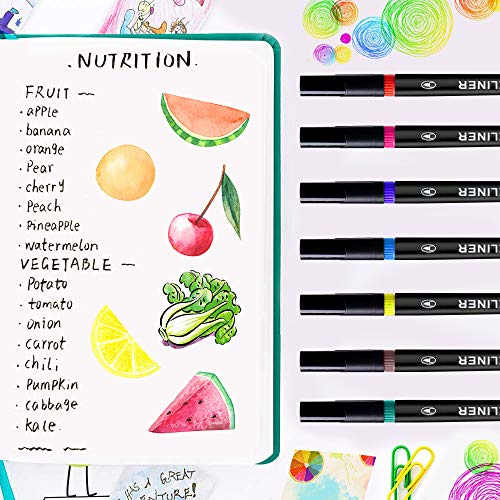 .NUTRITION.
FRUIT —
· apple
· banana
· orange
· Pear
· cherry
· Peach
· Pineapple
· watermelon
VEGETABLE —
· Potato
· tomato
· onion
· carrot
· chili
· Pumpkin
· cabbage
· kale.
HAS A GREAT
VENTURE!
LINER
LINER
LINER
LINER
LINER
LINER
LINER